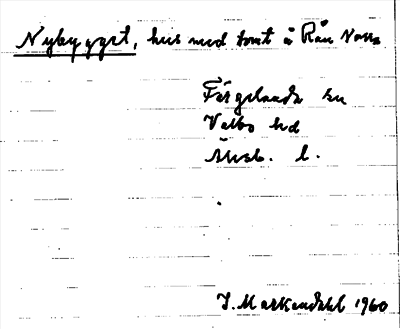 Nybygget, hus med tomt å Rån Norra
Färgelanda sn
Valbo hd
Älvsb. l.
J. Markendahl 1960